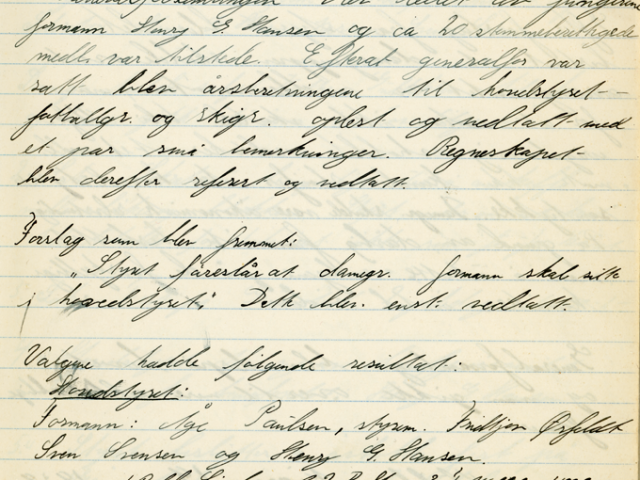 formann Henry G. Hansen og ca 20 stemmeberettigede
medl. var tilstede. Efterat generalfor var
satt blev årsberetningene til hovedstyret-
fotballgr. og skigr. oplest og vedtatt med
et par små bemerkninger. Regneskapet
blev derefter referert og vedtatt.
Forslag som blev fremmet:
"Styret foreslår at damegr. formann skal sitte
i hovedstyret." Dette blev enst. vedtatt.
Valgene hadde følgende resultat:
Hovedstyret:
Formann: Åge Paulsen, styrem. Fridtjon Ørfeldt
Sven Svensen og Henry G. Hansen.